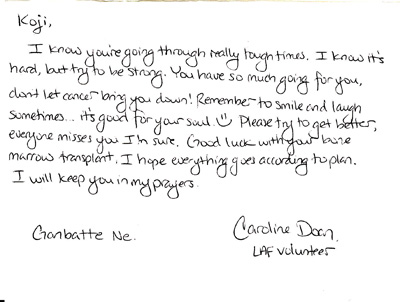 Koji,
I know you're going through really tough times. I know it's
hard, but try to be strong. You have so much going for you,
don't let cancer bring you down! Remember to smile and laugh
sometimes... it's good for your soul ☺ Please try to get better,
everyone misses you I'm sure. Good luck with your bone
marrow transplant, I hope everything goes according to plan.
I will keep you in my prayers.
Ganbatte Ne.
Caroline Doan
LAF Volunteer